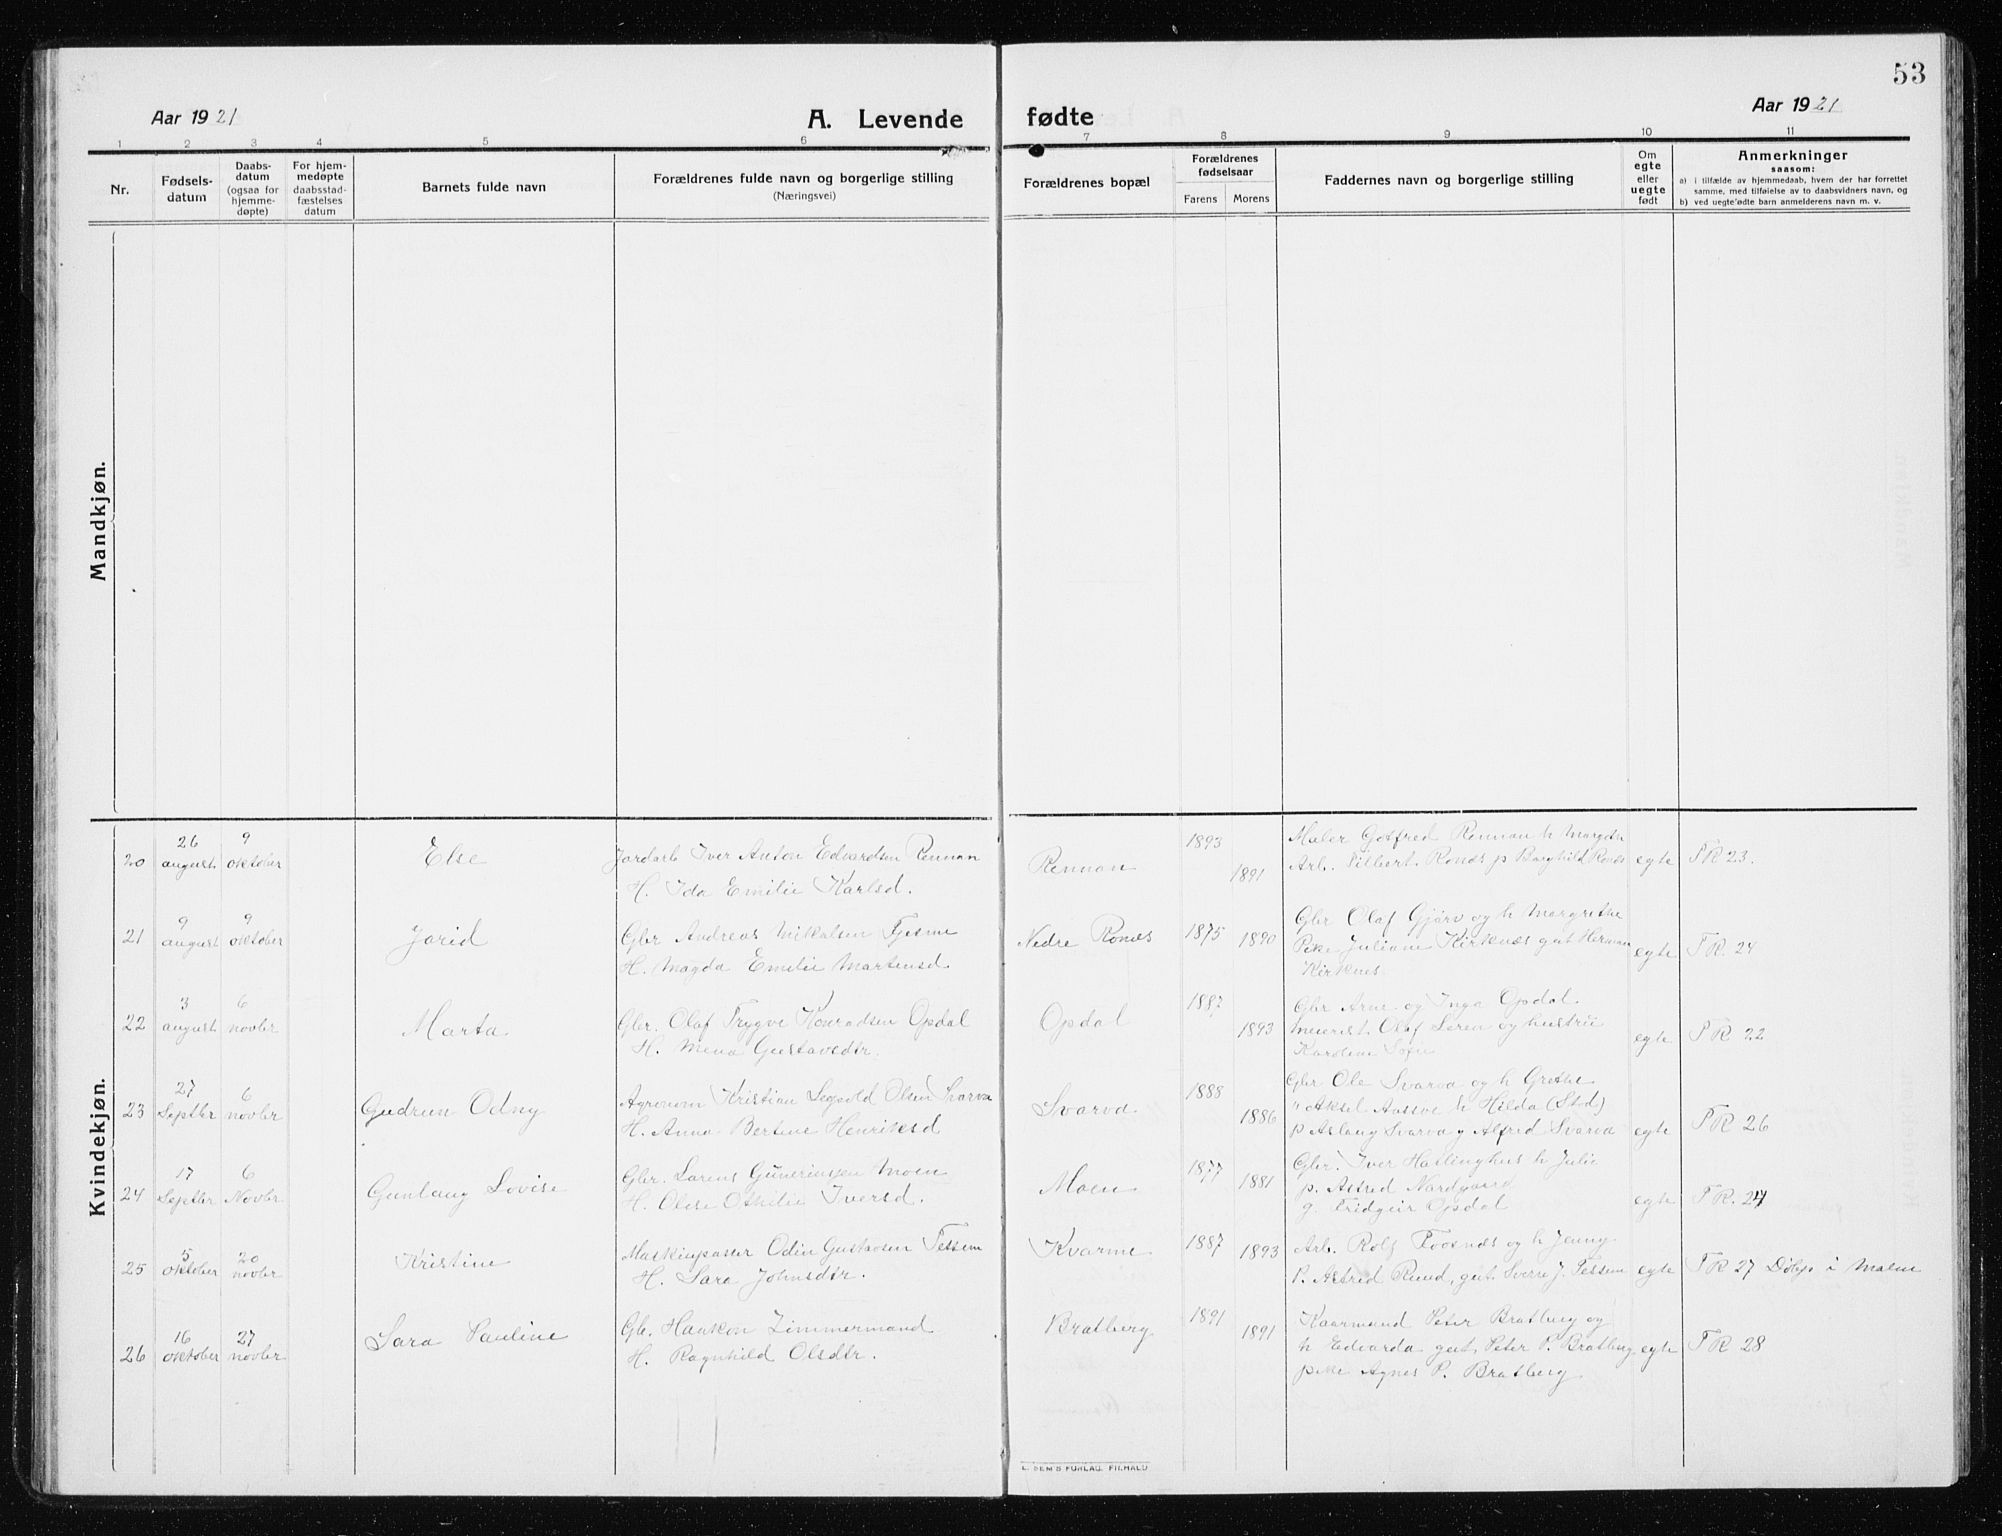 53
Aar 1921
A. Levende fødte
Aar 1921
1 2 3 4 5 6 7 8 9 10 11
Nr.
Fødsels-
datum
Daabs-
datum
(ogsaa for
hjemme-
døpte)
For hjem-
medøpte
daabsstad-
fæstelses
datum
Barnets fulde navn
Forældrenes fulde navn og borgerlige stilling
(Næringsvei)
Forældrenes bopæl
Forældrenes
fødselsaar
Farens Morens
Faddernes navn og borgerlige stilling
Om
egte
eller
uegte
født
Anmerkninger
saasom:
a) i tilfælde av hjemmedaab, hvem der har forrettet
samme, med tilføielse av to daabsvidners navn, og
b) ved uegte fødte barn anmelderens navn m. v.
Mandkjøn.
Kvindekjøn.
20
26
august
9
oktober
Else
Jordarb Iver Anton Edvardsen Rennan
H. Ida Emilie Karlsd.
Rennan
1893
1891
Maler Gotfred Rennan h Margith
Arb. Silbert Ronæs p Borghild Ronæs
egte
FR 23.
21
9
august
9
oktober
Jorid
Gbr Andreas Mikalsen Tjesme
H. Magda Emilie Martensd
Nedre Ronæs
1875
1890
Gbr Olaf Gjørv og h Margrethe
Pike Juliane Kirknæs gut Herman
Kirknes
egte
FR. 24
22
3
august
6
novbr
Marta
Gbr. Olaf Trygve Konradsen Opdal
H. Mena Gustavsdtr.
Opdal
1887
1893
Gbr Arne og Inga Opdal
meierist. Olaf Seren og hustru
Karoline Sofie
egte
FR 22
23
27
Septbr
6
novbr
Gudrun Odny
Agronom Kristian Leopold Olsen Svarva
H. Anna Bertine Henriksd
Svarva
1888
1886
Gbr Ole Svarva og h Grethe
" Aksel Aassve h Hilda (Std)
p Aslaug Svarva g Alfred Svarva
egte
FR 26
24
17
Septbr
6
Novbr
Gunlaug Lovise
Gbr. Lorens Guneriussen Moen
H. Olise Othilie Iversd.
Moen
1877
1881
Gbr. Iver Hallinghus h Julie
p. Astred Nordgaard
g. Fridgeir Opdal
egte
FR. 24
25
5
oktober
20
novbr
Kristine
Maskinpasser Odin Gustavsen Tessem
H. Sara Johnsdtr.
Kvarme
1887
1893
Arb. Rolf Foosnæs og h Jenny
P. Astrid Ruud, gut. Sverre J. Tessem
egte
FR 27 Døbt i Malm
26
16
oktober
27
novbr
Sara Pauline
Gbr. Haakon Zimmermand
H. Ragnhild Olsdtr.
Bratberg
1891
1891
Kaarmand Peter Bratberg og
h Edvarda gut Peter P. Bratberg
pike Agnes P. Bratberg
egte
FR 28
E. SEM'S FORLAG. FR.HALD